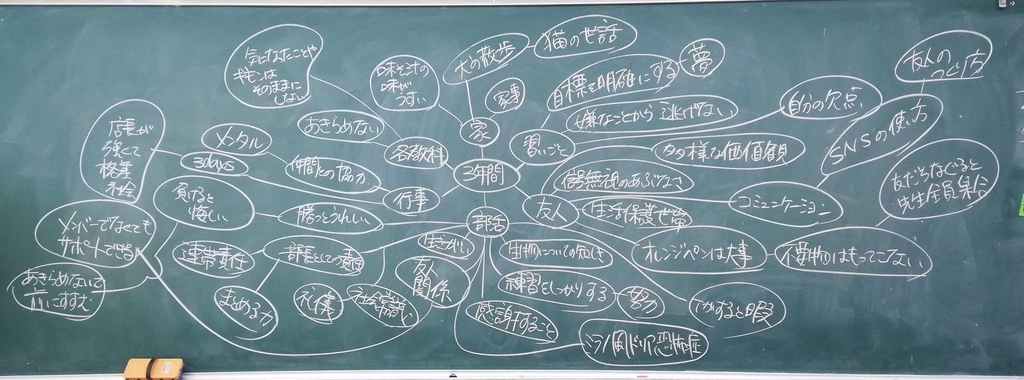 気になったことや
そのままに
しない
味がうすい
犬の散歩
猫のせ話
家事
家
目標を明確にする
夢
嫌なことから逃げない
自分の欠点
友人の
つくり方
SNSの使い方
店長が
強くて
メンタル
3days
あきらめない
各教科
仲間との協力
行事
3年間
習いごと
多様な価値観
信号無視のあぶなさ
友人
生活保護世帯
コミュニケーション
友だちをなぐると
先生全員集合
負けると
悔しい
勝つとうれしい
部活
メンバーでなくても
サポートできる
連帯責任
部長としての責任
オレンジペンは大事
貴重物はもってこない
あきらめないで
前にすすむ
まとめる力
礼儀
友人
関係
練習をしっかりする
努力
感謝すること
ケガすると暇
恐怖症